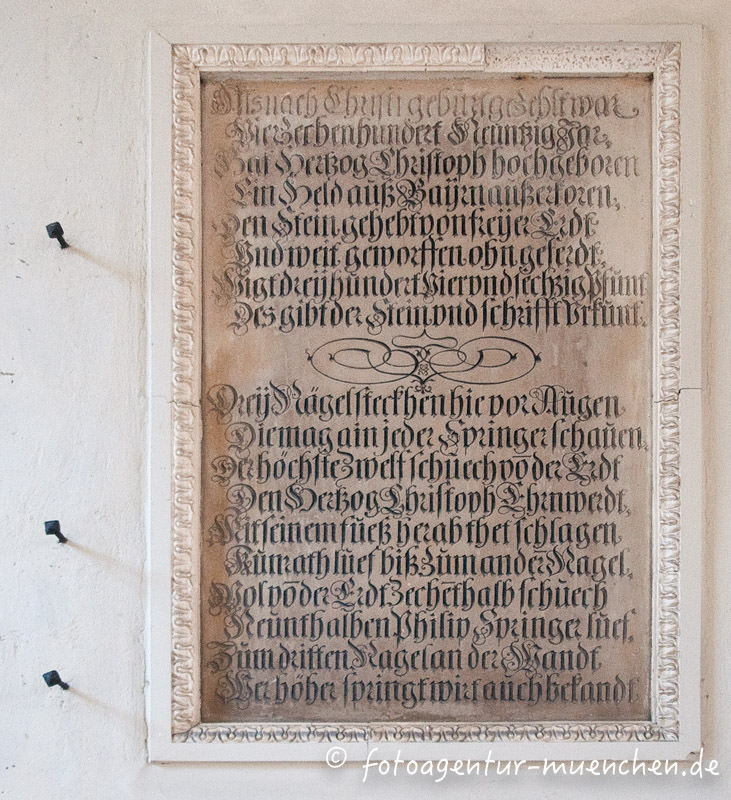 Als nach Christi geburt gezehlt war
Vierzechenhundert Neuntzig Jar,
Hat Hertzog Christoph hochgeboren
Ein Held auß Bayrn außerkoren,
Den Stein gehebt von freijer Erdt
Und weit geworffen ohn geferdt,
Wigt dreijhundert Vier vnd sechzig Pfunt,
Des gibt der Stein vnd schrifft Vrkunt.
Dreij Nägel steckhen hie vor Augen
Die mag ain jeder Springer schauen,
Der höchste zwelf schuech vō der Erdt
Den Hertzog Christoph Ehrnwerdt,
Mit seinem fueß herab thet schlagen
Kunrath luef biß zum ander Nagel,
Wol vō der Erdt zechēthalb schuech
Neunthalben Philip Springer luef,
Zum dritten Nagel an der Wandt
Wer höher springt wirt auch bekandt.
© fotoagentur-muenchen.de